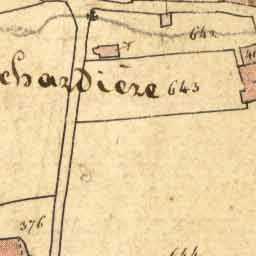 642
chardière 643
376
644